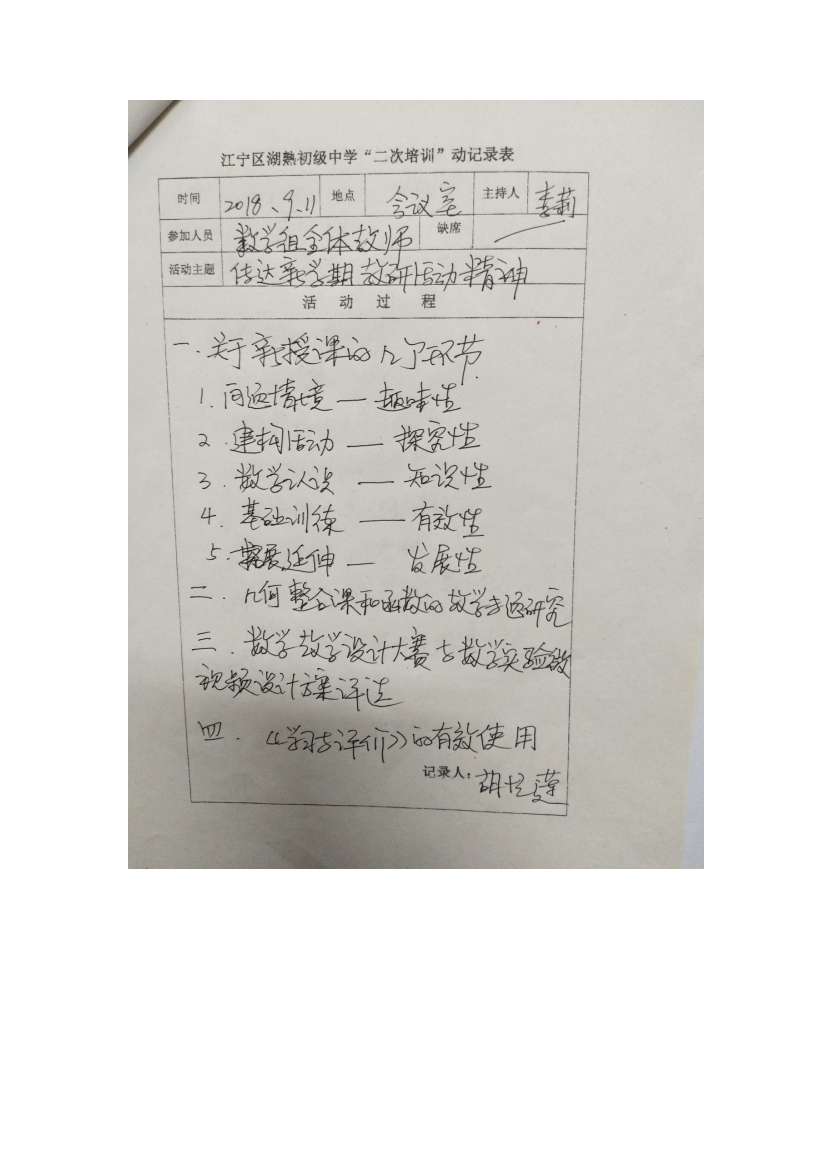 江宁区湖熟初级中学“二次培训”动记录表
时间 2018、9、11 地点 会议室 主持人 李莉
参加人员 数学组全体教师 缺席
活动主题 传达新学期教研活动精神
活动过程
一.关于新授课的几个环节
1.问题情境—趣味性
2.建构活动—探究性
3.数学认识—知识性
4.基础训练—有效性
5.拓展延伸—发展性
二.几何整合课和函数的教学专题研究
三.数学教学设计大赛与数学实验微
视频设计方案评选
四.《学习与评价》的有效使用
记录人:胡